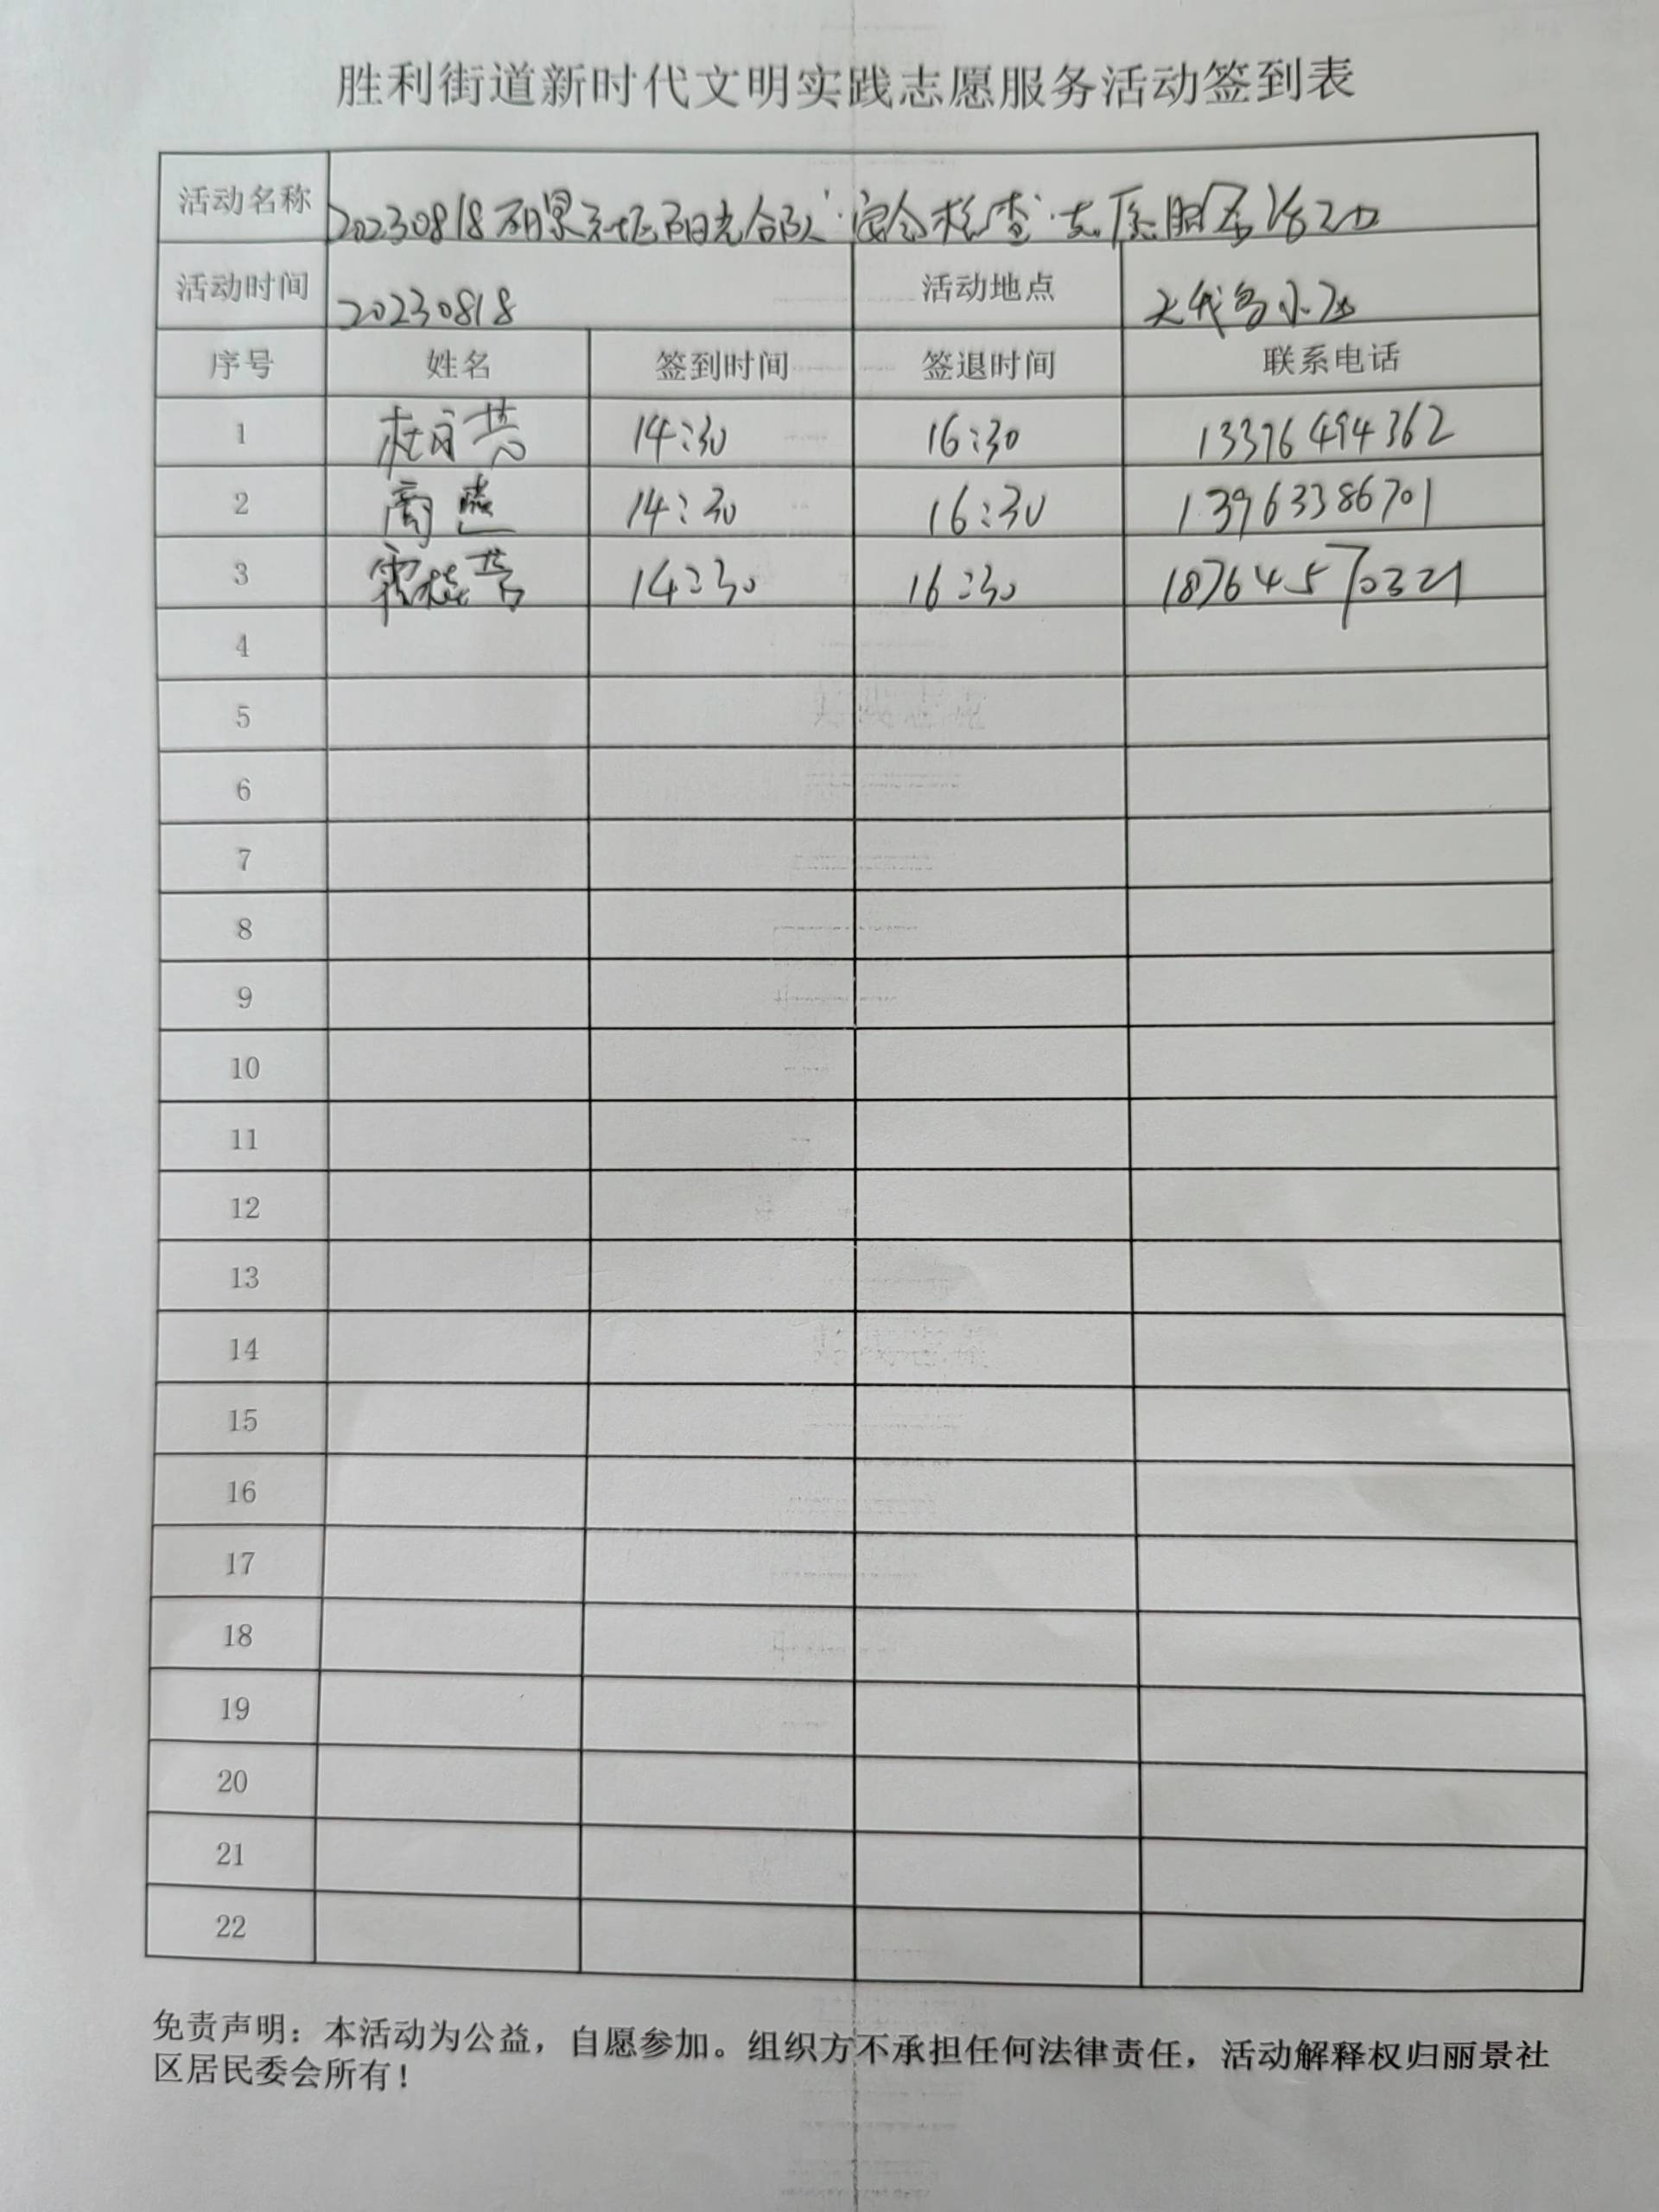 胜利街道新时代文明实践志愿服务活动签到表
活动名称 20230818丽景社区阳光合队"安全检查"志愿服务活动
活动时间 20230818 活动地点 小区
序号 姓名 签到时间 签退时间 联系电话
1 杜 芸 14:30 16:30 13376494362
2 商 14:30 16:30 13963386701
3 霍桂芳 14:30 16:30 18764570321
4
5
6
7
8
9
10
11
12
13
14
15
16
17
18
19
20
21
22
免责声明：本活动为公益，自愿参加。组织方不承担任何法律责任，活动解释权归丽景社
区居民委会所有！